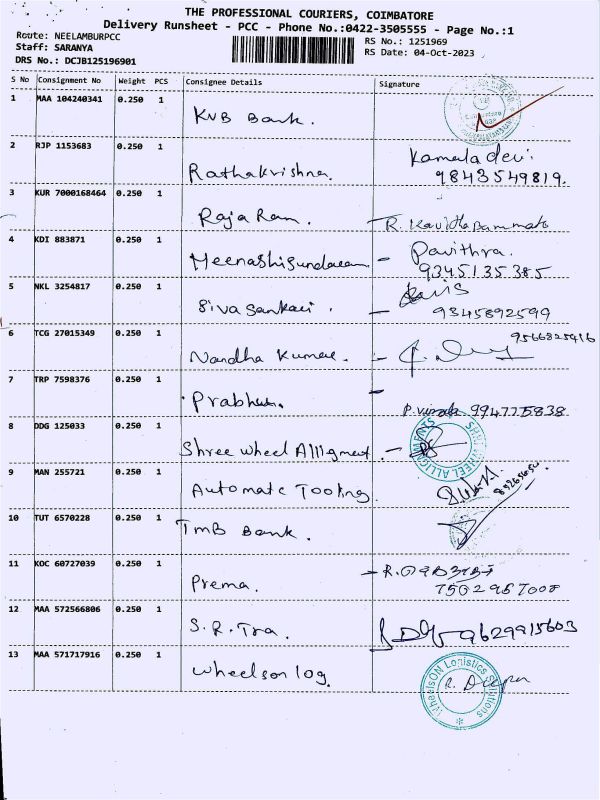 THE PROFESSIONAL COURIERS, COIMBATORE
Delivery Runsheet - PCC - Phone No.:0422-3505555 - Page No.:1
Route: NEELAMBURPCC
RS No.: 1251969
Staff: SARANYA
RS Date: 04-Oct-2023
DRS No.: DCJB125196901
S No Consignment No Weight PCS Consignee Details Signature
1 MAA 104240341 0.250 1 KVB Bank.
2 RJP 1153683 0.250 1 Rathakrishna. Kamaladevi
9843549819.
3 KUR 7000168464 0.250 1 Raja Ram. R.
4 KDI 883871 0.250 1 Meenashisundaram - Pavithra.
9345135385
5 NKL 3254817 0.250 1 Sivasankari. -
9345892599
6 TCG 27015349 0.250 1 Nandha Kumar. - 9566825416
7 TRP 7598376 0.250 1 Prabhu. 994775838
8 DDG 125033 0.250 1 Shree Wheel Allignment. -
9 MAN 255721 0.250 1 Automatic Tooling.
10 TUT 6570228 0.250 1 TMB Bank.
11 KOC 60727039 0.250 1 Prema.
12 MAA 572566806 0.250 1 S.R. Tra. 9629915603
13 MAA 571717916 0.250 1 Wheelson log. R. Deepa
WheelsON Logistics Solutions